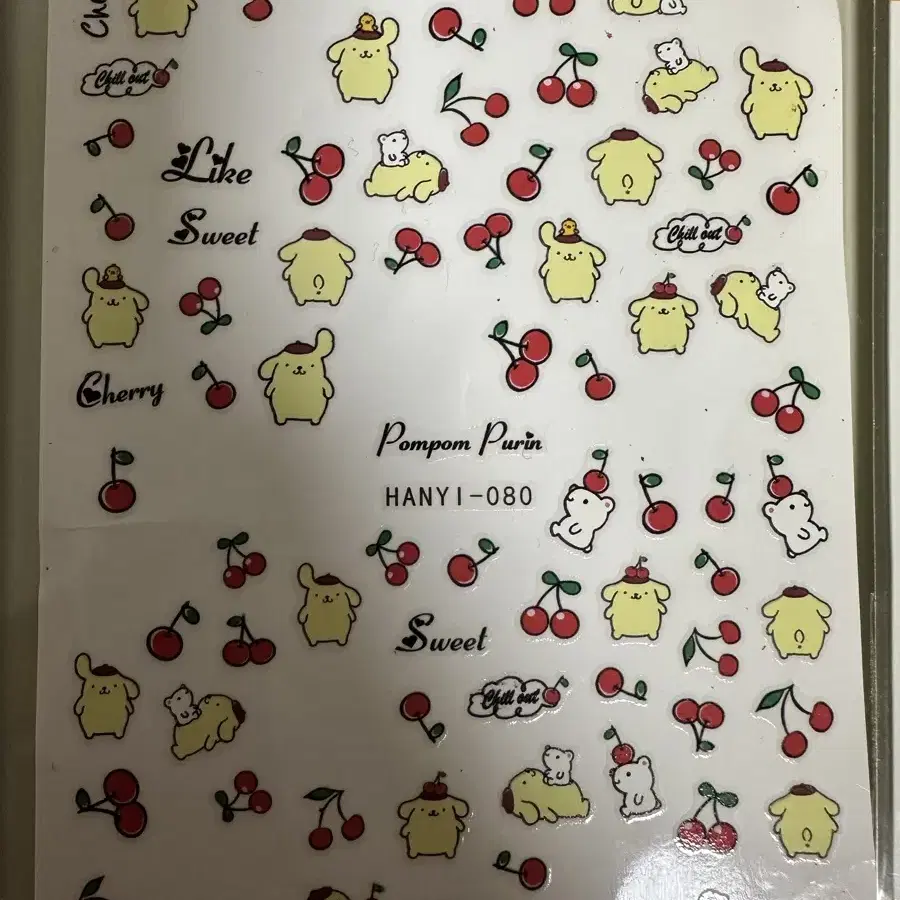 Che
Chill out
Like
Sweet
Chill out
Cherry
Pompom Purin
HANYI-080
Sweet
Chill out